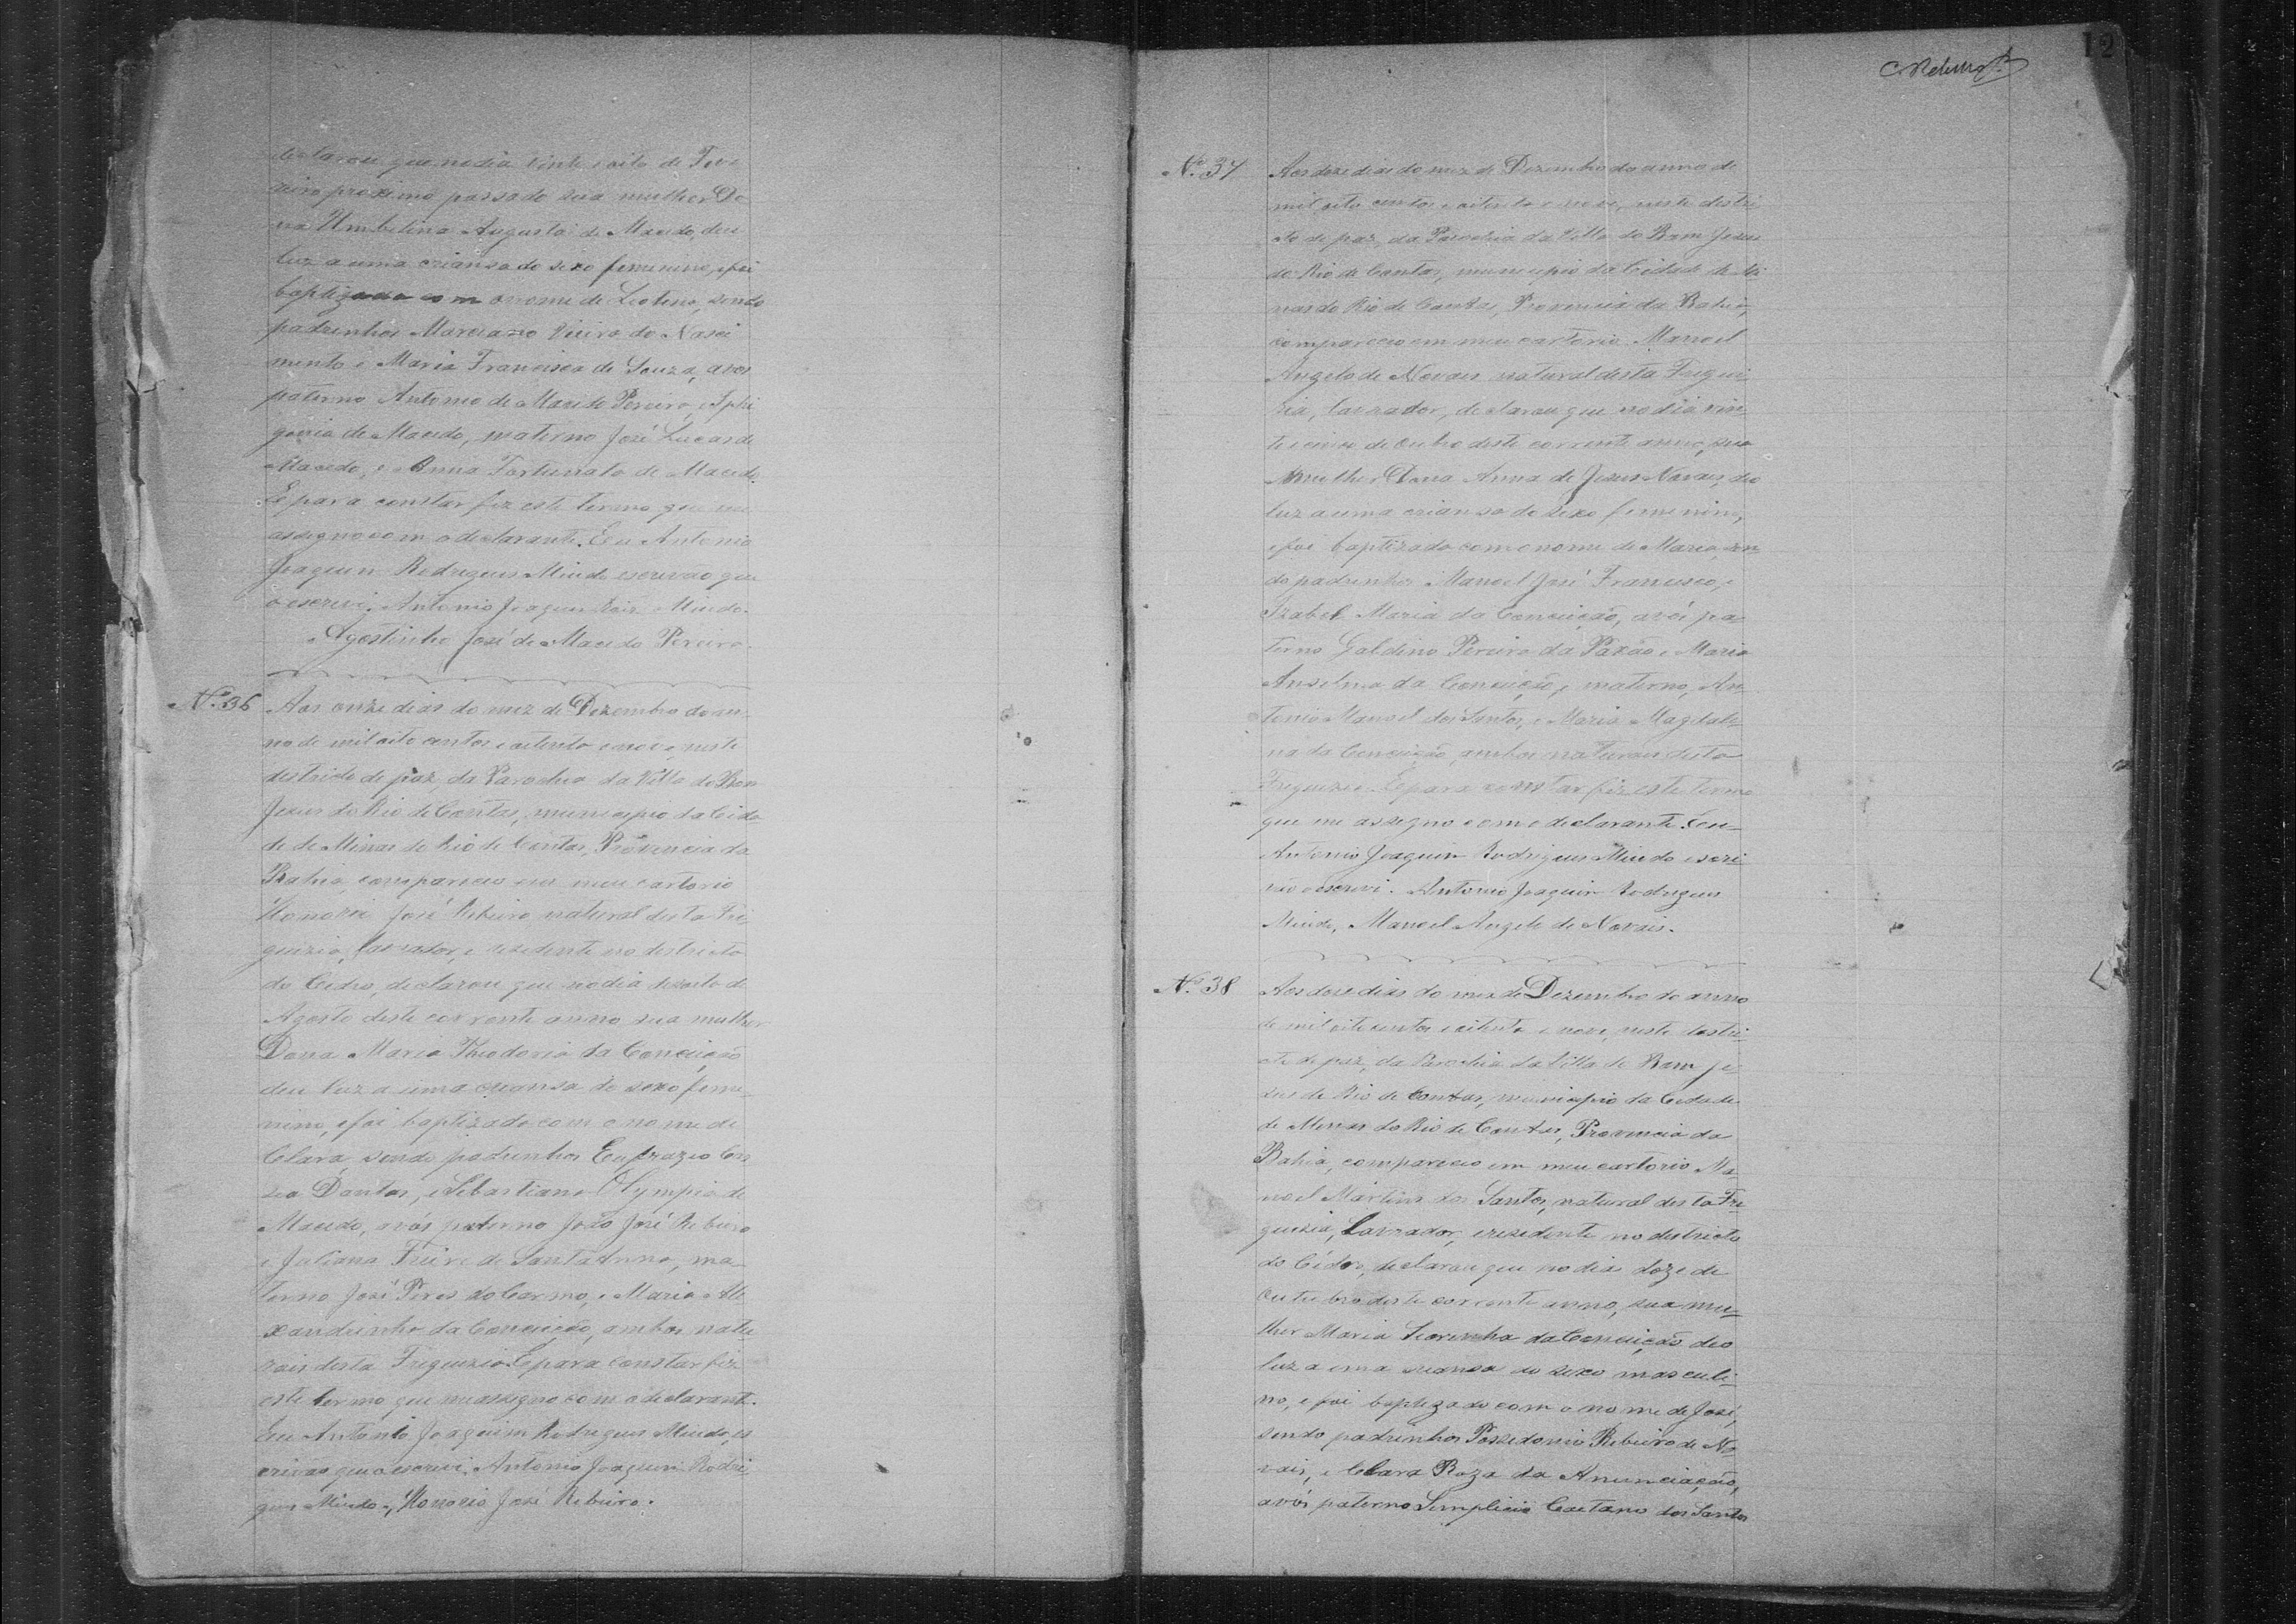 declarou que no dia vinte e oito de Feve
reiro proximo passado sua mulher Do
na Umbelina Augusta de Macedo, deu
luz a uma criansa do sexo feminino, e foi
baptizada com o nome de sendo
padrinhos Marciano Vieira do Nasci
mento e Maria Francisca de Souza, avos
paterno Antonio de Macedo Pereira, e Iphi
genia de Macedo, materno José Lucas de
Macedo, e Anna Fortunata de Macedo.
E para constar fiz este termo que me
assigno com o declarante. Eu Antonio
Joaquim Rodrigues escrivao que
o escrevi. Antonio Joaquim Roiz
Agostinho José de Macedo Pereira.
Nº. 36
Aos onze dias do mez de Dezembro do an
no de mil oito centos e oitenta e nove, neste
districto de paz, da Parochia da Villa do Bom
Jesus do Rio de Contas, municipio da Cida
de de Minas do Rio de Contas, Provincia da
Bahia, compareceo em meu cartorio
Honorio José Ribeiro natural desta Fre
guezia, lavrador, e residente no districto
do Cedro, declarou que no dia dezoito de
Agosto deste corrente anno sua mulher
Dona Maria Theodoria da Conceição
deu luz a uma criansa do sexo femi
nino, e foi baptizado com o nome de
Clara, sendo padrinhos Eufrazio
Dantas, e Sebastiana Olympia de
Macedo, avós paterno João José Ribeiro
e Juliana Freire de Santa Anna, ma
terno José Pires do Carmo, e Maria Ale
xandrinha da Conceição, ambos natu
rais desta Freguezia. E para constar fiz
este termo que me assigno com o declarante.
Eu Antonio Joaquim Rodrigues es
crivão que o escrevi. Antonio Joaquim Rodri
gues Honorio José Ribeiro.
12
Nº. 37
Aos doze dias do mez de Dezembro do anno de
mil oito centos e oitenta e nove, neste distri
cto de paz, da Parochia da Villa do Bom Jesus
do Rio de Contas, municipio da Cidade de Mi
nas do Rio de Contas, Provincia da Bahia,
compareceo em meu cartorio Manoel
Angelo de Novais natural desta Fregue
zia, lavrador, declarou que no dia vin
te e cinco de Outbro deste corrente anno, sua
mulher Dona Anna de Jesus Novais, deo
luz a uma criansa do sexo feminino,
e foi baptizado com o nome de Maria, sen
do padrinhos Manoel José Francisco, e
Izabel Maria da Conceição, avós pa
terno Galdino Pereira da Paxão e Maria
Anselma da Conceição, e materno, An
tonio Manoel dos Santos, e Maria Magdale
na da Conceição, ambos naturais desta
Freguezia. E para constar fiz este termo
que me assigno com o declarante. Eu
Antonio Joaquim Rodrigues escri
vão o escrevi. Antonio Joaquim Rodrigues
Manoel Angelo de Novais.
Nº. 38
Aos doze dias do mez de Dezembro do anno
de mil oito centos e oitenta e nove, neste destri
cto de paz, da Parochia da Villa de Bom Je
sus do Rio de Contas, municipio da Cidade
de Minas do Rio de Contas, Provincia da
Bahia, compareceo em meu cartorio Ma
noel Martins dos Santos, natural desta Fre
guezia, Lavrador, e rezidente no destricto
do Cedro, declarou que no dia doze de
Outubro deste corrente anno, sua mu
lher Maria da Conceição deo
luz a uma criansa do sexo masculi
no, e foi baptizado com o nome de José,
sendo padrinhos Possedonio Ribeiro de No
vais, e Clara Roza da Anunciação,
avós paterno Simplicio Caetano dos Santos